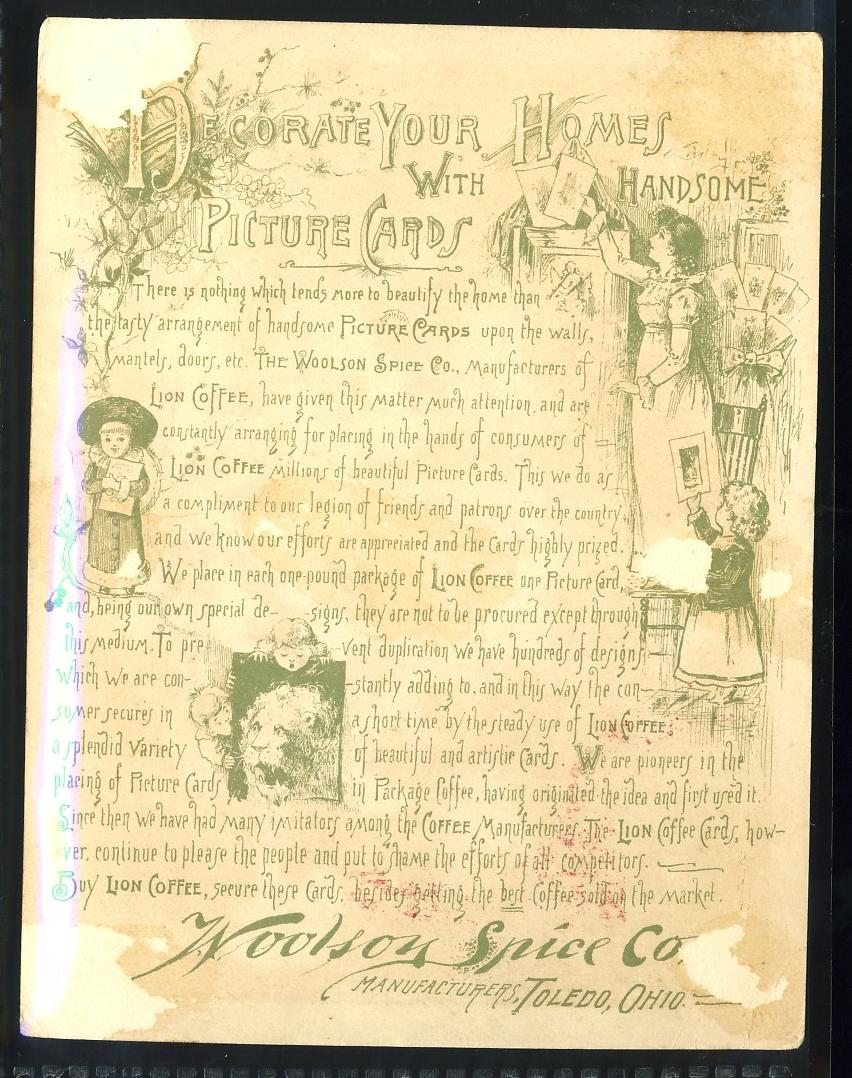 DECORATE YOUR HOMES
WITH HANDSOME
PICTURE CARDS
There is nothing which tends more to beautify the home than
the tasty arrangement of handsome PICTURE CARDS upon the walls,
mantels, doors, etc. THE WOOLSON SPICE CO., Manufacturers of
LION COFFEE, have given this matter much attention, and are
constantly arranging for placing in the hands of consumers of
LION COFFEE millions of beautiful Picture Cards. This we do as
a compliment to our legion of friends and patrons over the country,
and we know our efforts are appreciated and the Cards highly prized.
We place in each one-pound package of LION COFFEE one Picture Card,
and, being our own special de- signs, they are not to be procured except through
this medium. To pre- vent duplication we have hundreds of designs
which we are con- stantly adding to, and in this way the con-
sumer secures in a short time by the steady use of LION COFFEE
a splendid variety of beautiful and artistic Cards. We are pioneers in the
placing of Picture Cards in Package Coffee, having originated the idea and first used it.
Since then we have had many imitators among the COFFEE Manufacturers. The LION Coffee Cards, how-
ever, continue to please the people and put to shame the efforts of all competitors.
Buy LION COFFEE, secure these Cards, besides getting the best Coffee sold on the market.
Woolson Spice Co.
MANUFACTURERS, TOLEDO, OHIO.